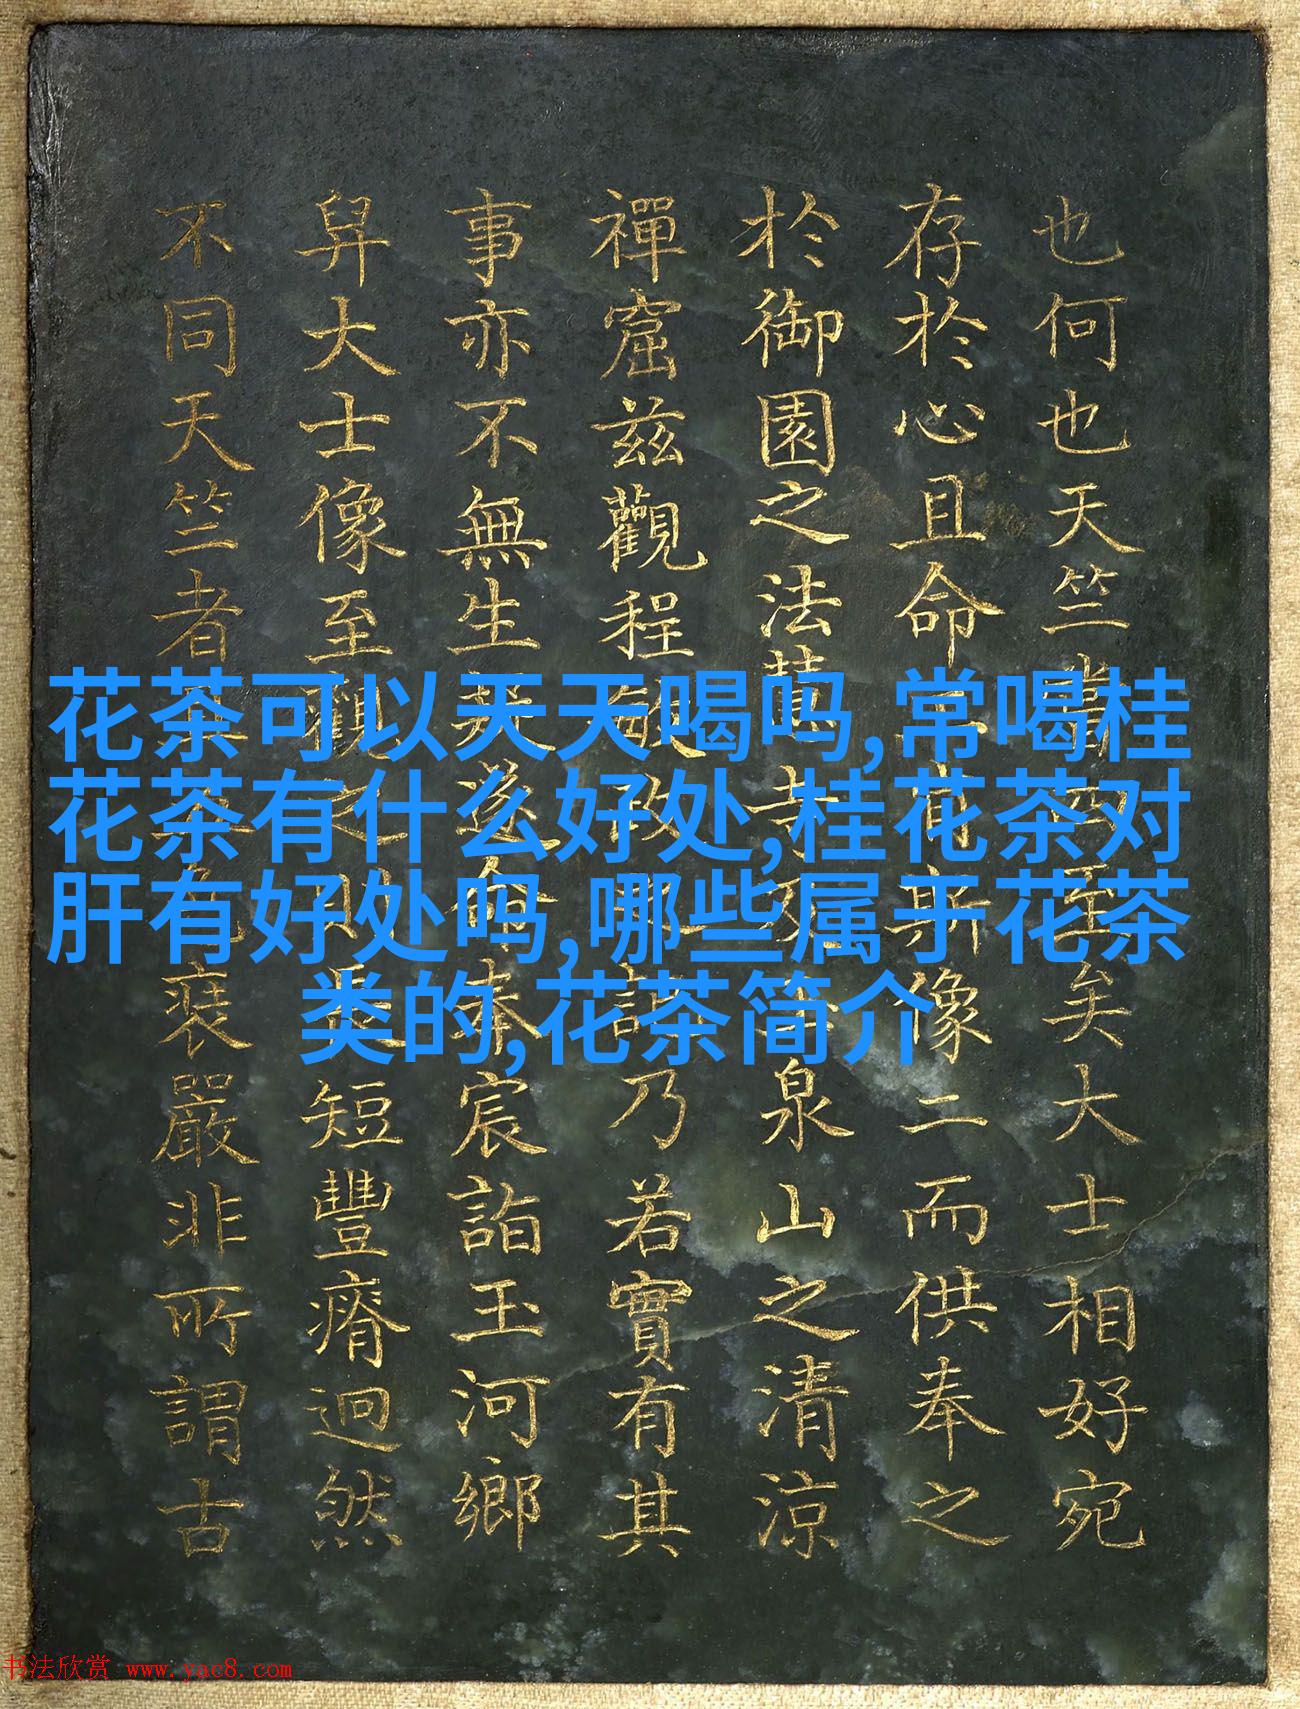 也何也天竺至矣大士相好宛
存於心且命斯像二而供奉之
於御園之法慧寺泉山之清涼
禪窟茲觀程敏政記乃若實有其
事亦不無生遂命奉宸詣玉河鄉
舁大士像至觀之則短豐瘠迥然
不同天竺者嚴非所謂古
花茶可以天天喝吗,常喝桂
花茶有什么好处,桂花茶对
肝有好处吗,哪些属于花茶
类的,花茶简介
书法欣赏 www.yac8.com